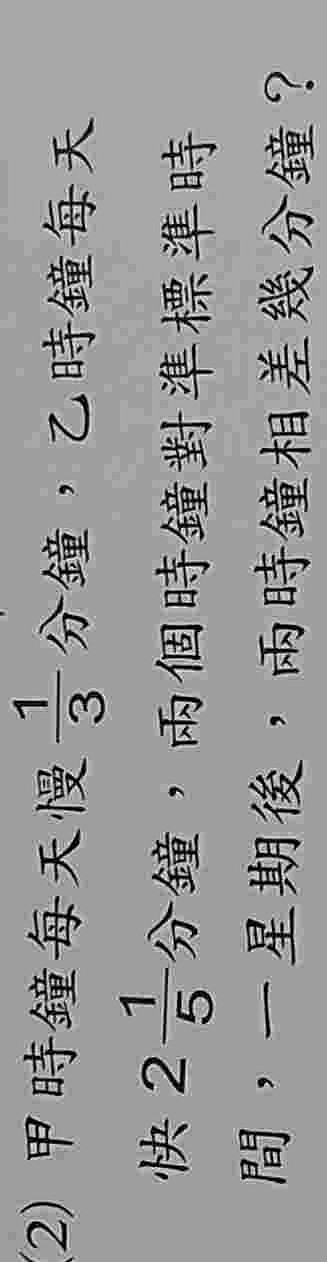 (2) 甲時鐘每天慢 1/3 分鐘，乙時鐘每天
快 2 1/5 分鐘，兩個時鐘對準標準時
間，一星期後，兩時鐘相差幾分鐘？